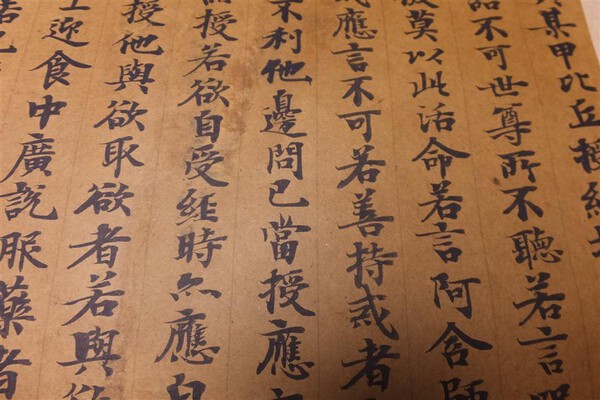 某甲比丘授經
不可世尊所不聽若言
莫以此活命若言阿含師
或應言不可若善持戒者
不利他邊問已當授應
授若欲自受經時亦應自
授他與欲取欲者若與欲
迎食中廣說服藥者